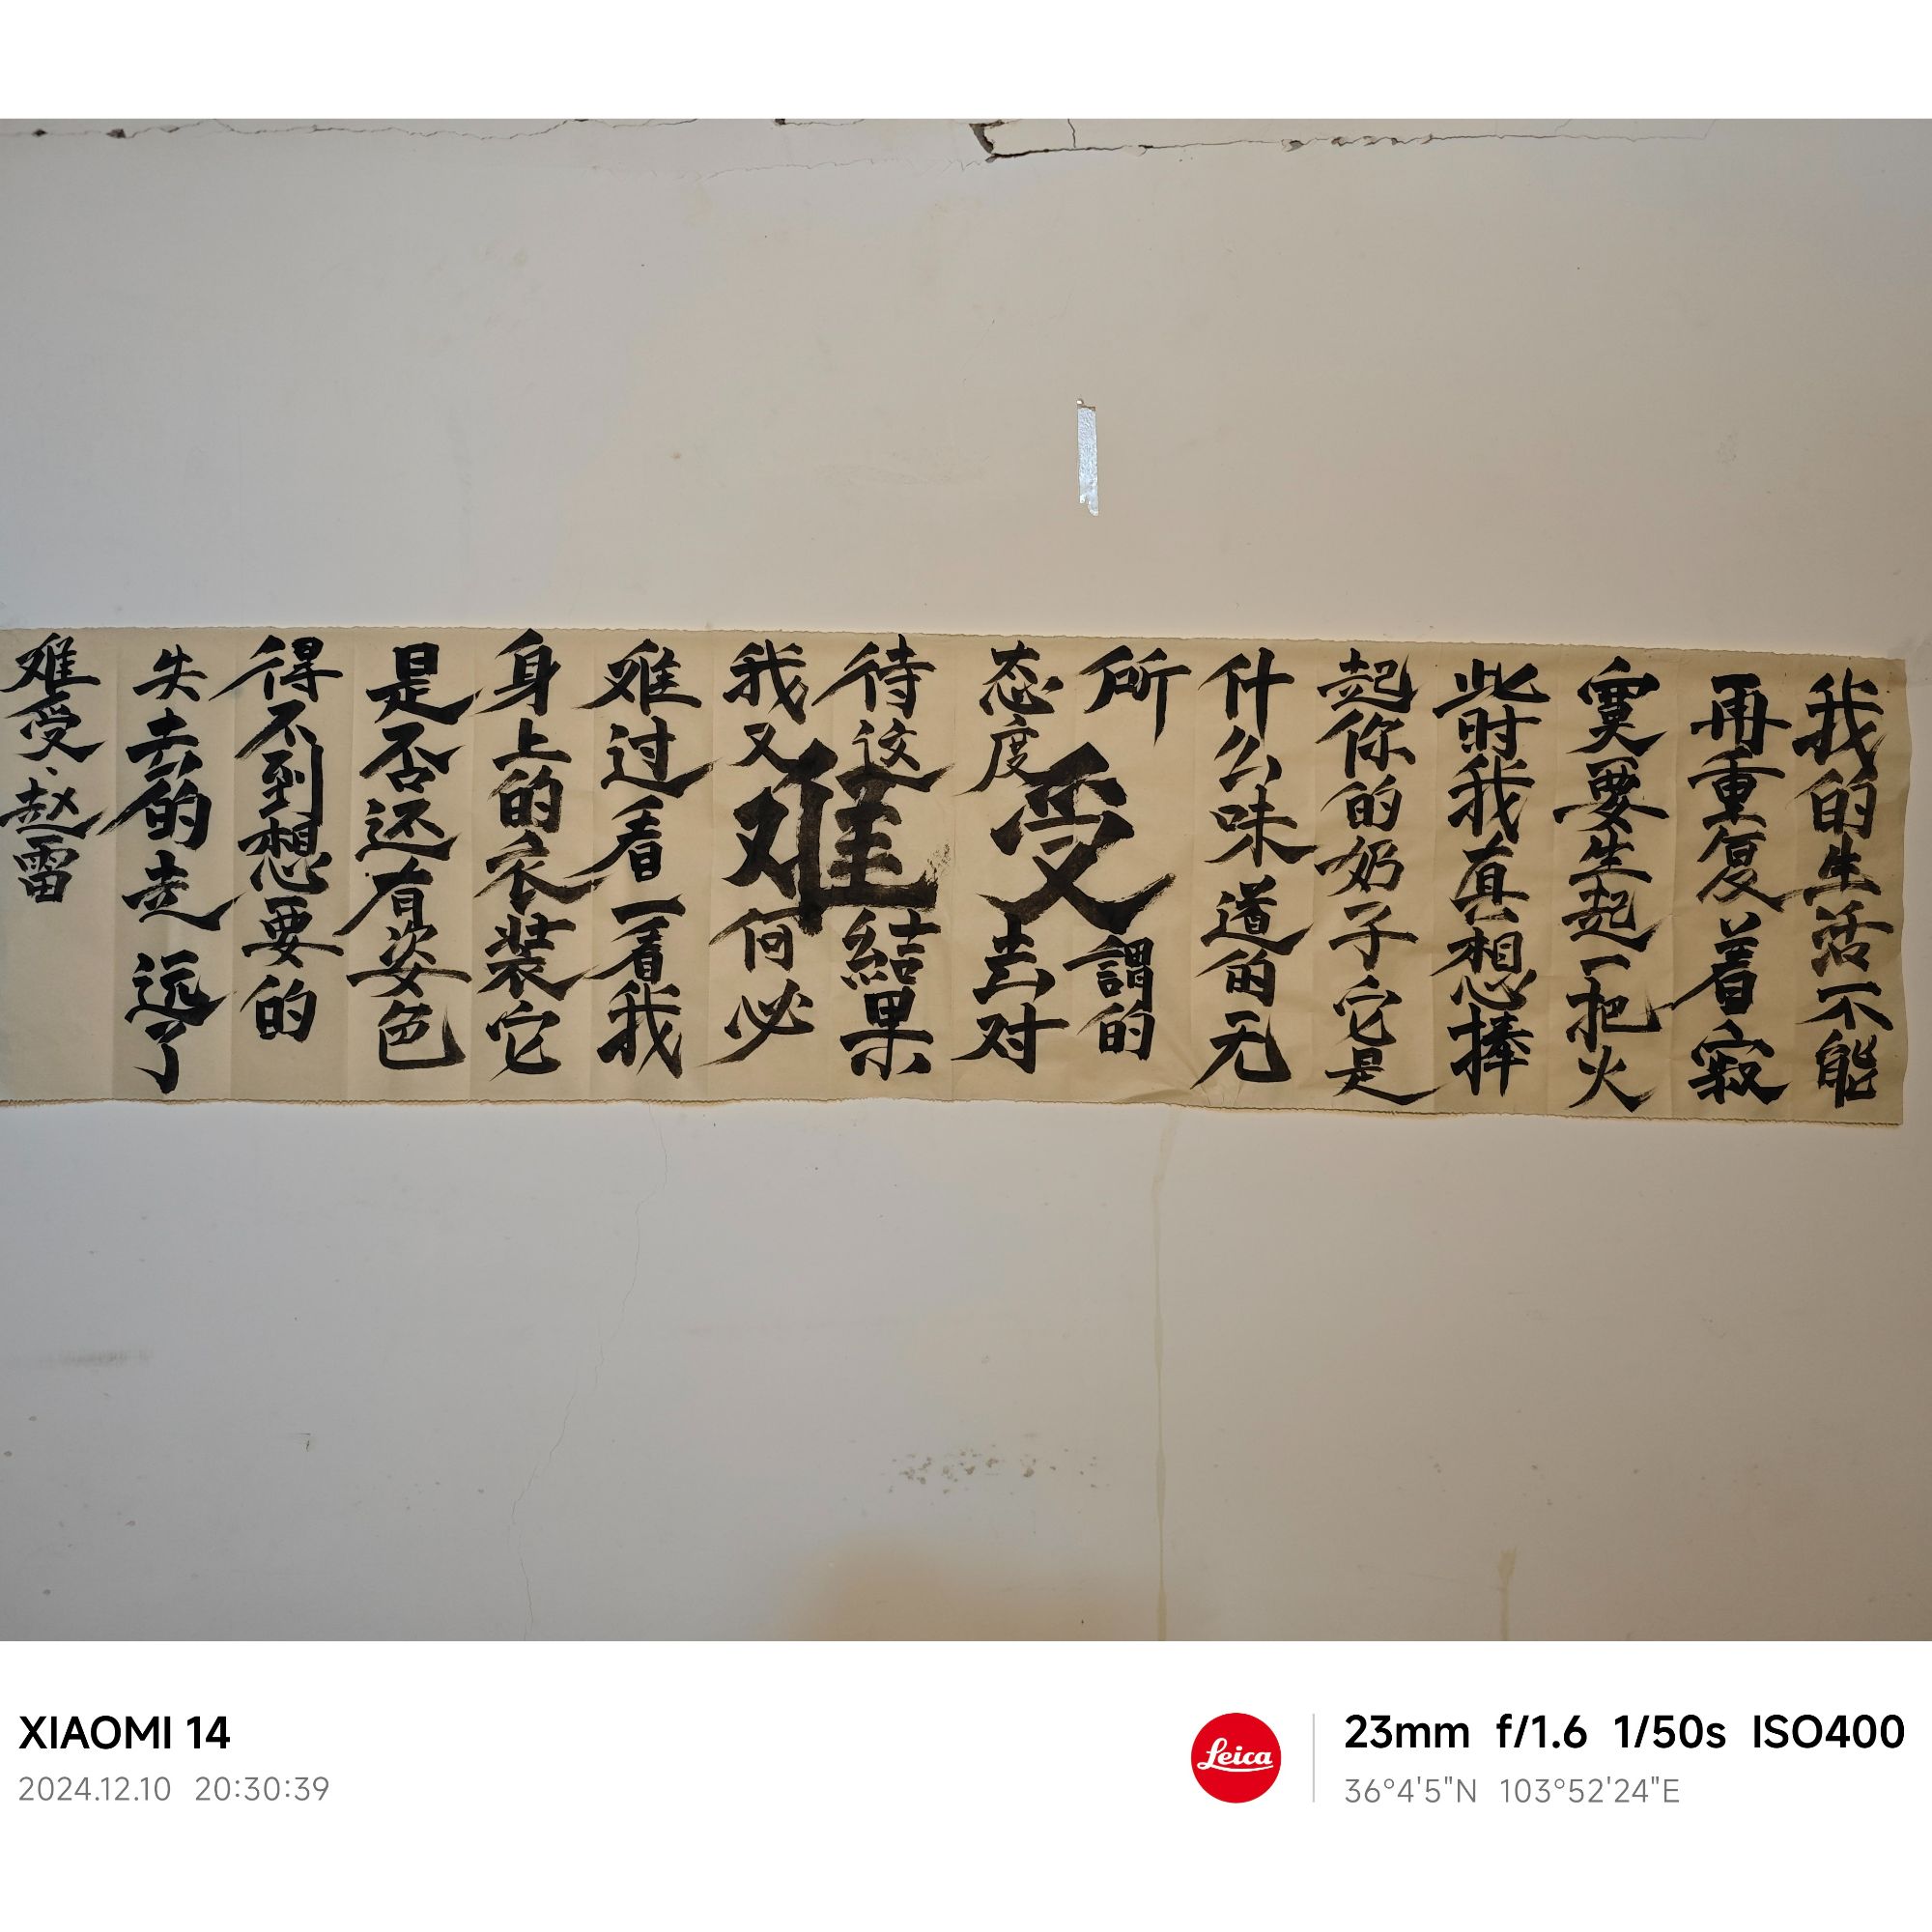 我的生活不能
再重复着寂
寞要生起一把火
此时我真想捧
起你的奶子它是
什么味道的无
所謂的
态度去对
待这結果
我又何必
难过看一看我
身上的衣装它
是否还有姿色
得不到想要的
失去的走远了
难受、赵雷
难受
XIAOMI 14
2024.12.10 20:30:39
Leica
23mm f/1.6 1/50s ISO400
36°4'5"N 103°52'24"E